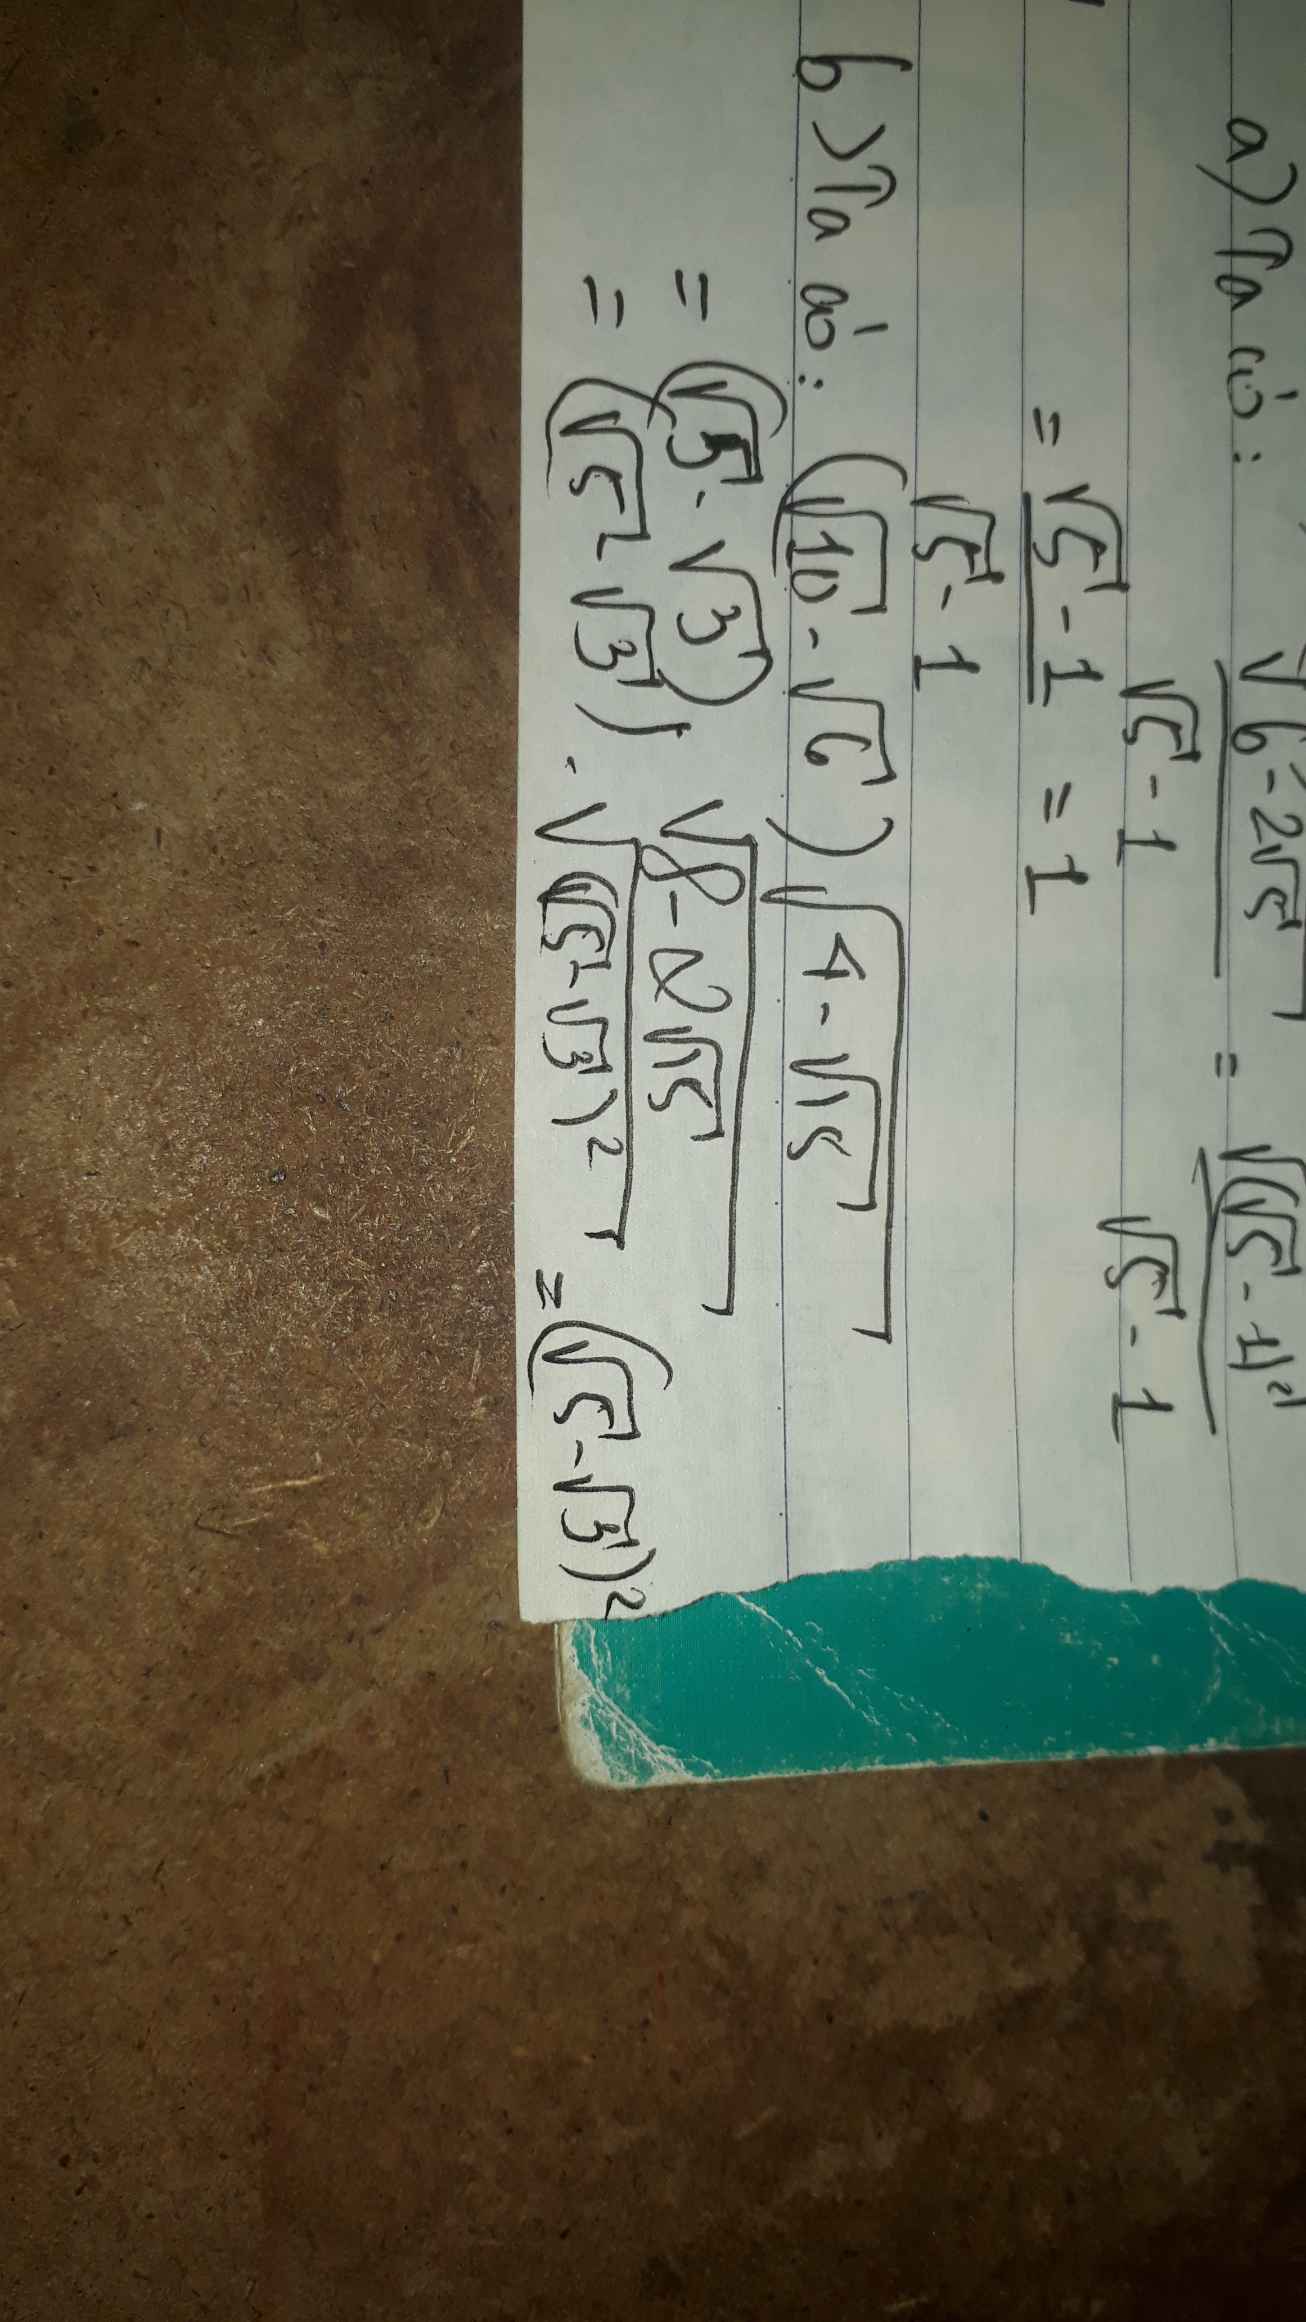 a) Ta có:
√(6-2√5) / (√5 - 1) = √((√5 - 1)²) / (√5 - 1)
= (√5 - 1) / (√5 - 1) = 1
b) Ta có: (√10 - √6) √(4 - √15)
= (√5 - √3) √(8 - 2√15)
= (√5 - √3) . √((√5 - √3)²) = (√5 - √3)²